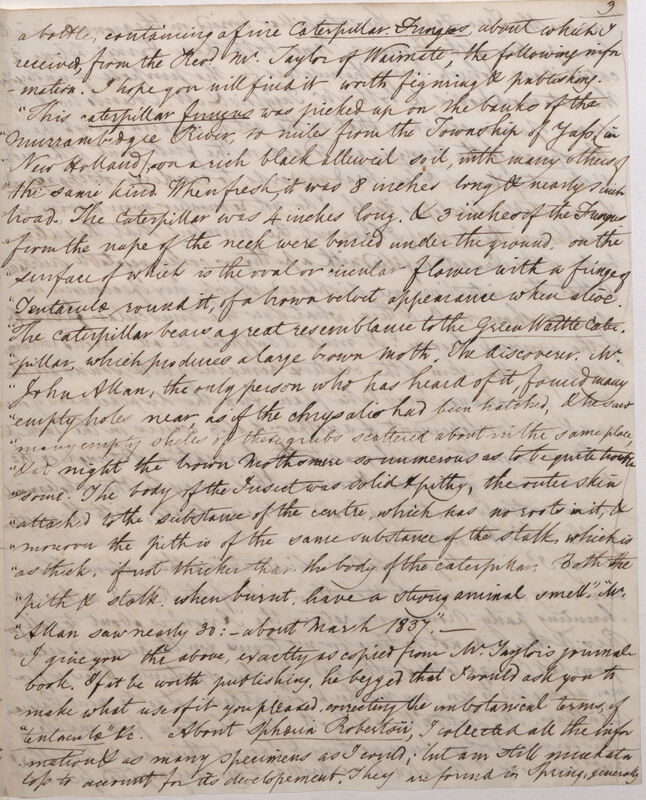 3
a bottle, containing a fine Caterpillar Fungus, about which I
received, from the Revd Mr. Taylor of Waimate, the following infor
-mation. I hope you will find it worth figuring & publishing.
"This caterpillar fungus was picked up on the banks of the
"Murrambidgee River, miles from the Township of Yass, (in
New Holland), on a rich black alluvial soil, with many others of
the same kind. When fresh, it was 8 inches long & nearly inch
broad. The Caterpillar was 4 inches long. & 3 inches of the Fungus
"from the nape of the neck were buried under the ground. on the
"surface of which is the oval or circular flower with a fringe of
"Tentaculæ round it, of a brown velvet appearance when alive.
"The caterpillar bears a great resemblance to the Green Wattle Cater-
"pillar, which produces a large brown Moth. The discoverer. Mr.
"John Allan, the only person who has heard of it, found many
"empty holes near, as if the chrysalis had been hatched, & he saw
"many empty shells of these grubs scattered about in the same place,
"& at night the brown Moths were so numerous as to be quite trouble
"some. The body of the Insect was solid & pithy, the outer skin
"attach'd to the substance of the centre, which has no roots in it, &
"moreover the pith is of the same substance of the stalk, which is
"as thick, if not thicker than the body of the caterpillar. Both the
"pith & stalk when burnt, have a strong animal smell". "Mr.
"Allan saw nearly 30: – about March 1837." —
I give you the above, exactly as copied from Mr. Taylor's journal
book. If it be worth publishing, he begged that I would ask you to
make what use of it you pleased, correcting the unbotanical terms, of
"tentacula" &c. About Sphæria Robertsii, I collected all the infor
mation & as many specimens as I could; but am still much at a
loss to account for its developement. They are found in Spring, generally